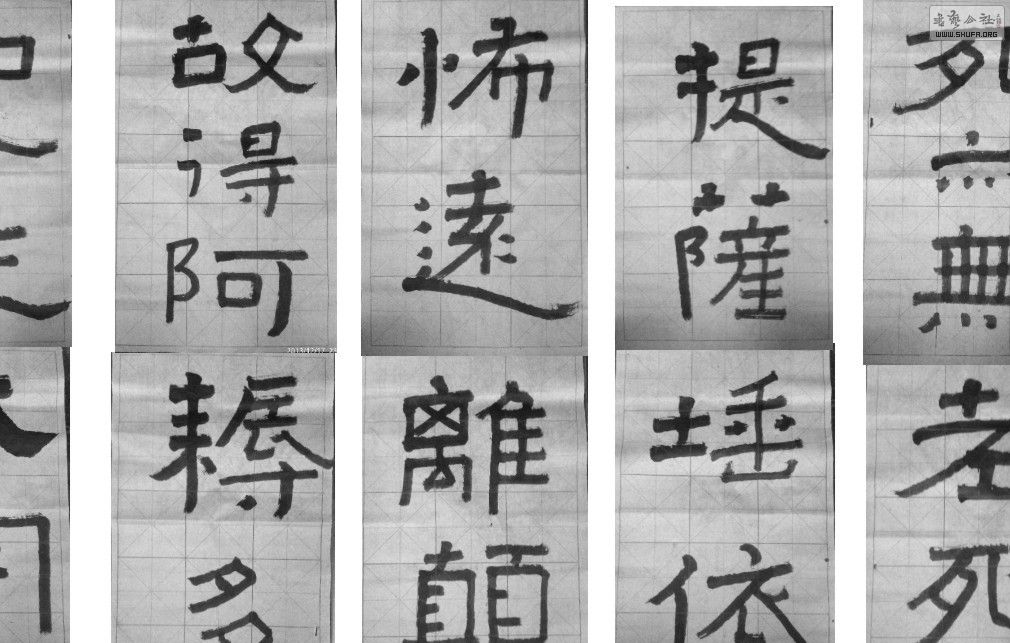 書藝公社
WWW.SHUFA.ORG
死亦無老死
提薩埵依
怖遠離顛
故得阿耨多